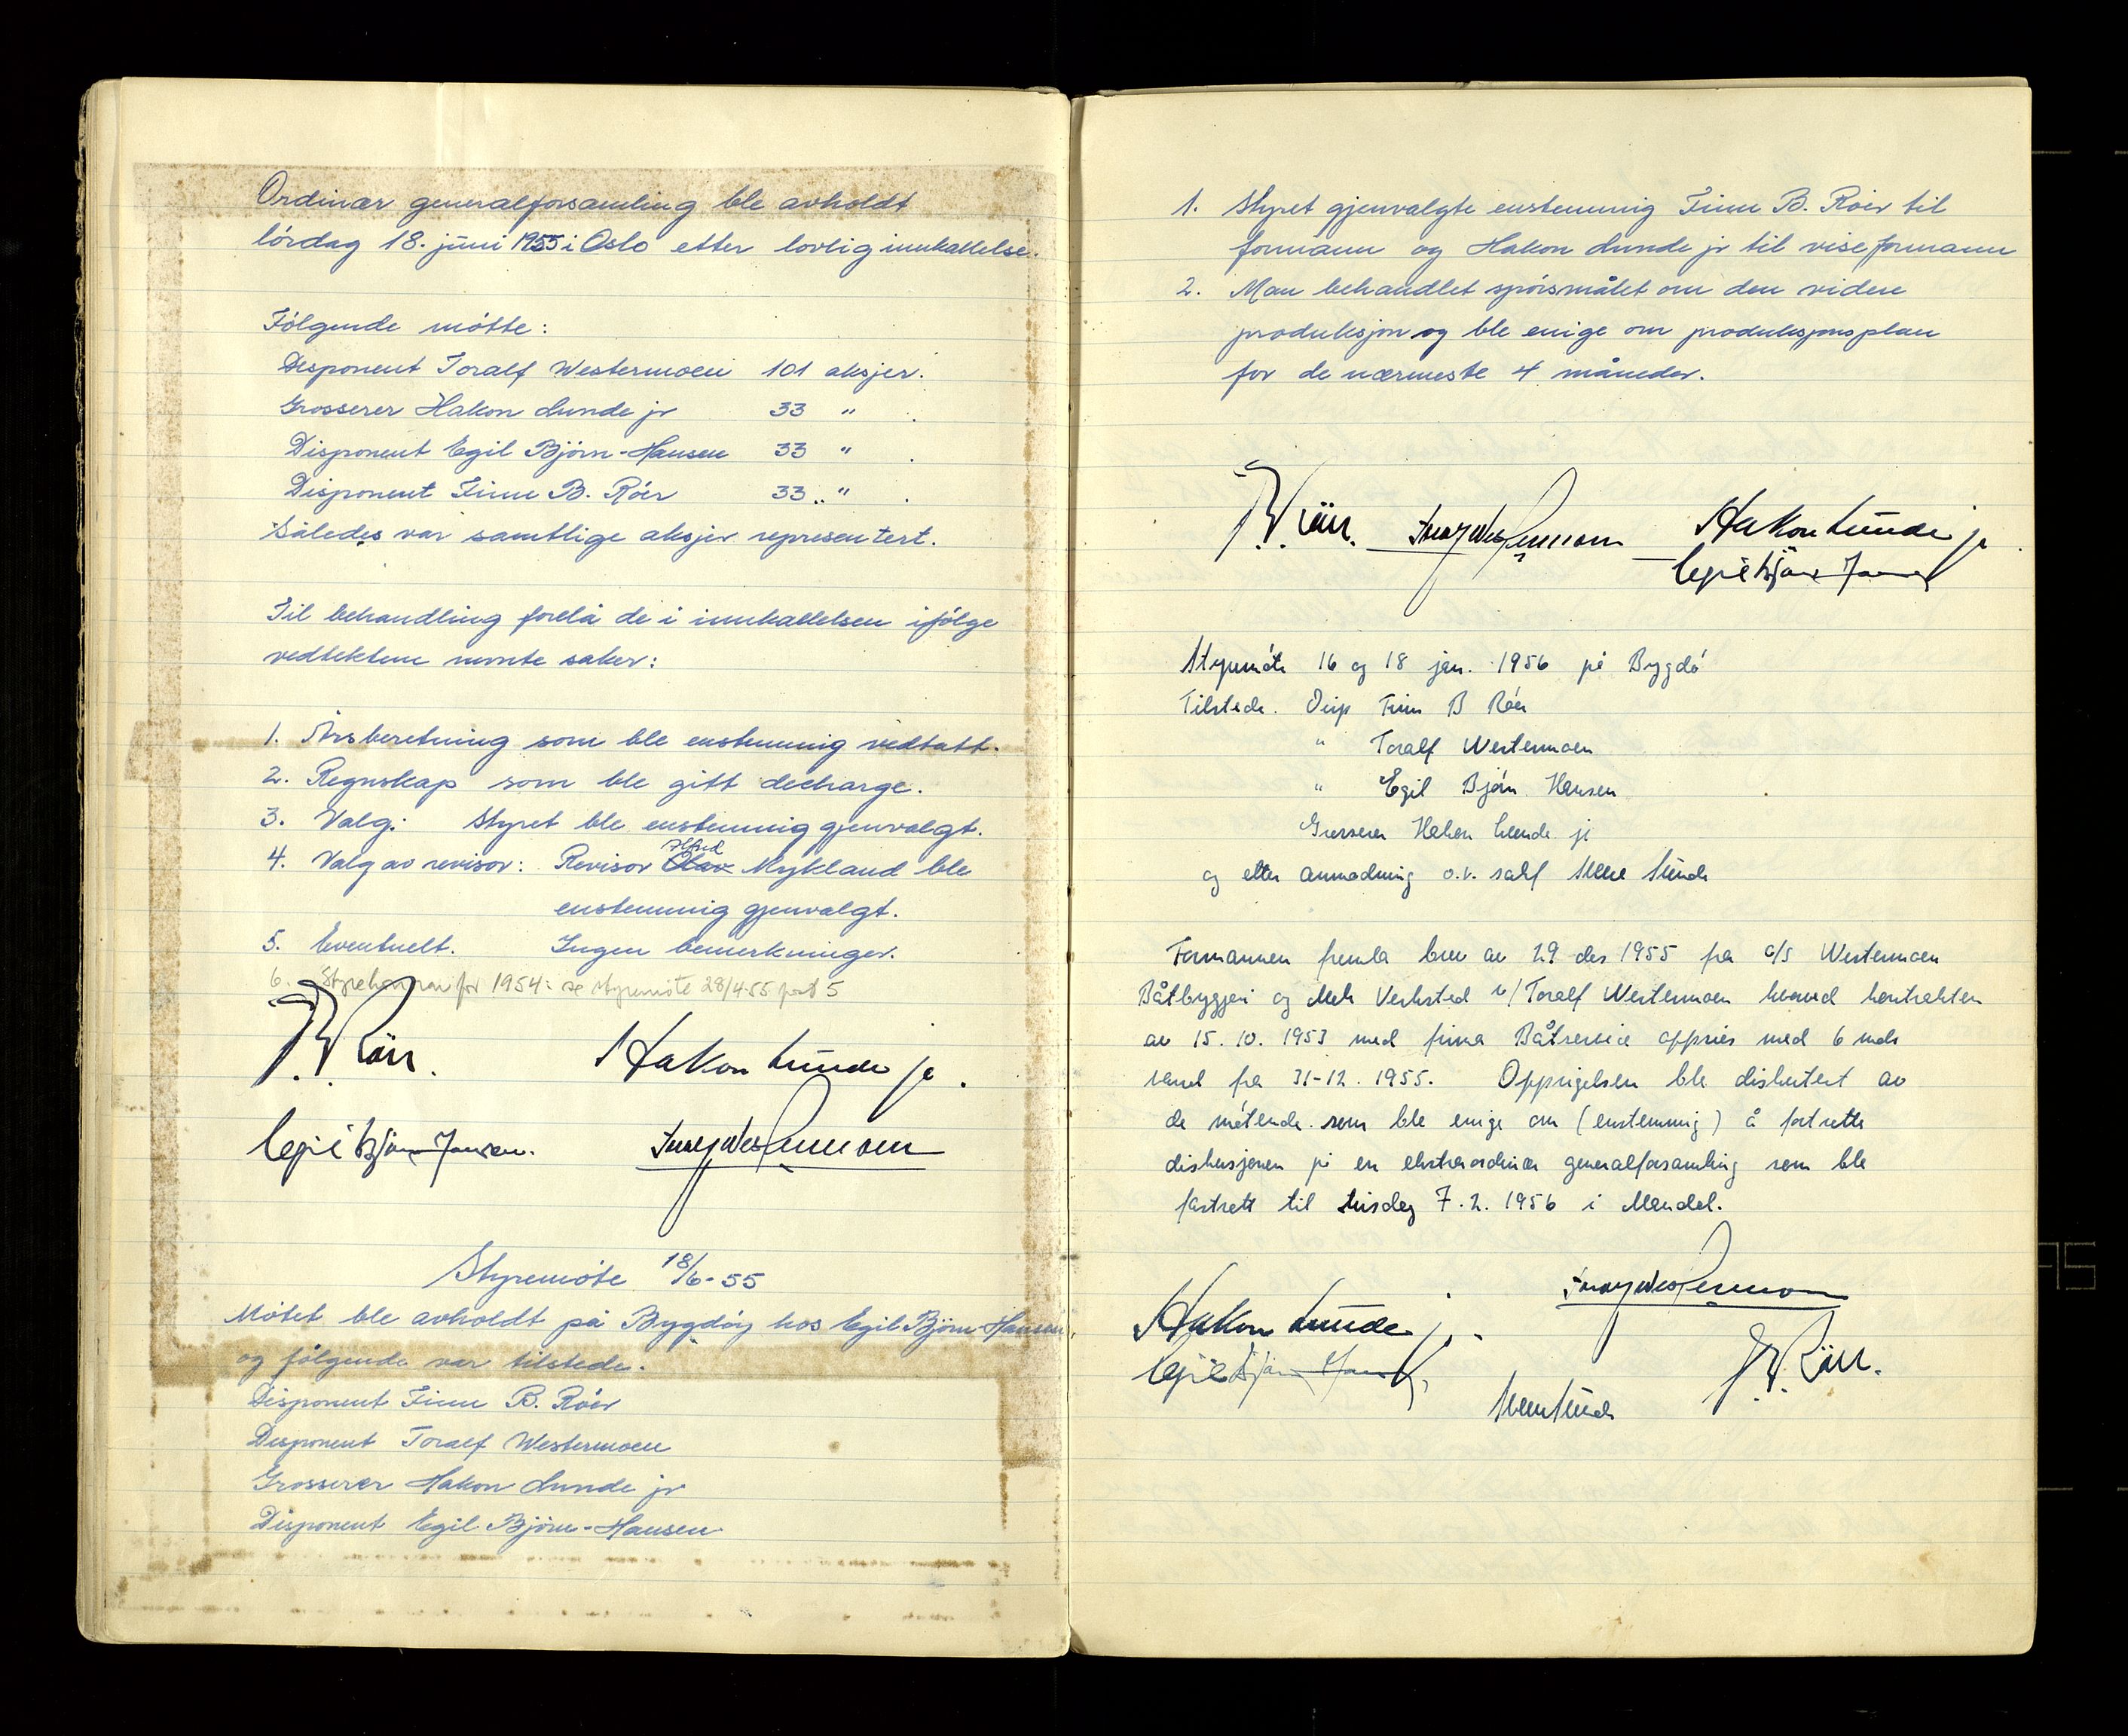 Ordinær generalforsamling ble avholdt
lørdag 18. juni 1955 i Oslo etter lovlig innkallelse.
Følgende møtte:
Disponent Toralf Westermoen 101 aksjer.
Grosserer Hakon Lunde jr 33 "
Disponent Egil Björn-Hansen 33 "
Disponent Finn B. Röer 33 "
Således var samtlige aksjer representert.
Til behandling forelå de i innkallelsen ifølge
vedtektene nevnte saker:
1. Årsberetning som ble enstemmig vedtatt.
2. Regnskap som ble gitt decharge.
3. Valg: Styret ble enstemmig gjenvalgt.
Alfred
4. Valg av revisor: Revisor Olav Mykland ble
enstemmig gjenvalgt.
5. Eventuelt. Ingen bemerkninger.
6. Styrehonorar for 1954: se styremøte 28/4-55 post 5
Hakon Lunde jr.
Egil Björn-Hansen.
Toralf Westermoen
Styremøte 18/6-55
Møtet ble avholdt på Bygdöy hos Egil Björn-Hansen,
og følgende var tilstede.
Disponent Finn B. Röer
Disponent Toralf Westermoen
Grosserer Hakon Lunde jr
Disponent Egil Björn-Hansen
1. Styret gjenvalgte enstemmig Finn B. Röer til
formann og Hakon Lunde jr til viseformann
2. Man behandlet spørsmålet om den videre
produksjon og ble enige om produksjonsplan
for de nærmeste 4 måneder.
Röer. Toralf Westermoen Hakon Lunde jr
Egil Björn Hansen
Styremøte 16 og 18 jan. 1956 på Bygdø
Tilstede. Disp Finn B Röer
" Toralf Westermoen
" Egil Bjørn Hansen
Grosserer Hakon Lunde jr
og etter anmodning o.r. sakf
Formannen fremla brev av 29 des 1955 fra a/s Westermoen
Båtbyggeri og Mek Verksted v/ Toralf Westermoen hvorved kontrakten
av 15. 10. 1953 med firma Båtservice oppsies med 6 mdr
varsel fra 31-12. 1955. Oppsigelsen ble diskutert av
de møtende som ble enige om (enstemmig) å fortsette
diskusjonen på en ekstraordinær generalforsamling som ble
fastsatt til tirsdag 7. 2. 1956 i Mandal.
Toralf Westermoen
Hakon Lunde jr.
Egil Björn Hansen
Röer.